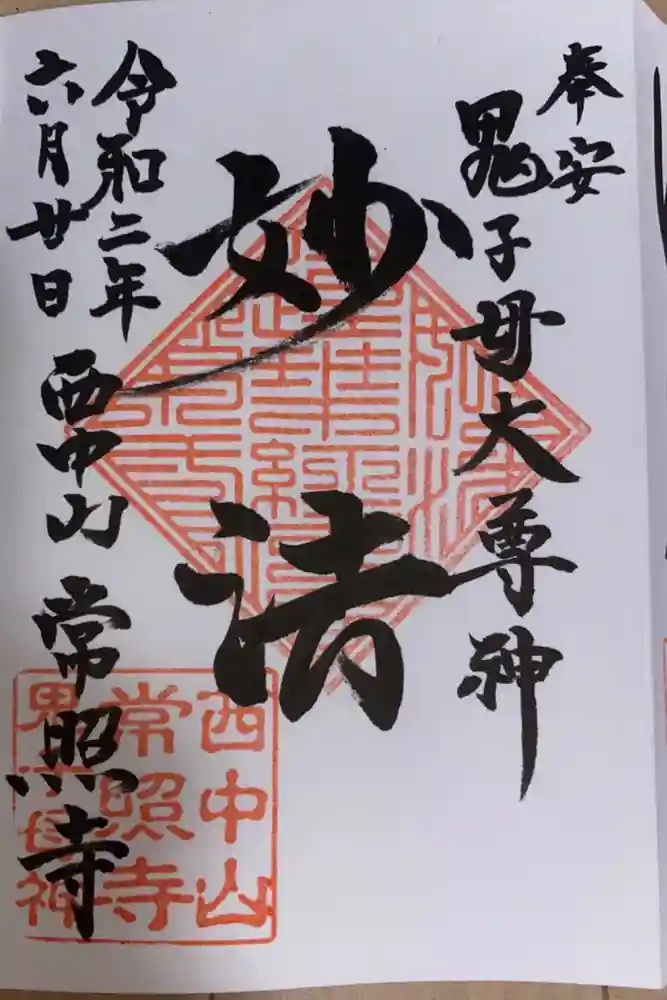 奉安
鬼子母大尊神
妙法
令和二年
六月廿日
西中山 常照寺
西中山
常照寺
鬼子母神